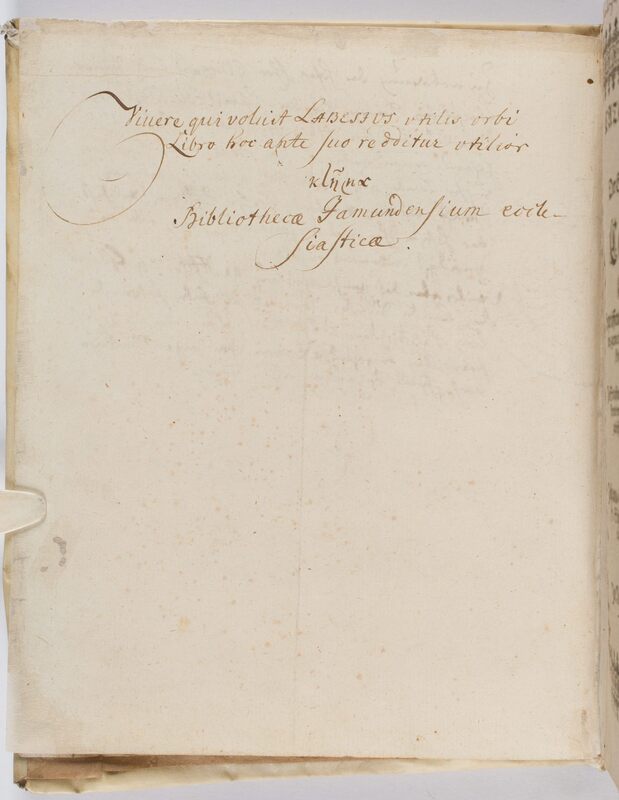 Viuere qui voluit LABESSVS vtilis orbi
Libro hoc ante suo redditur vtilior
Bibliothecæ Gamundensium eccle-
siasticæ.